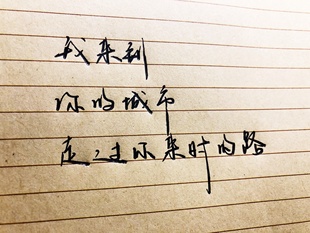 我来到
你的城市
走过你来时的路